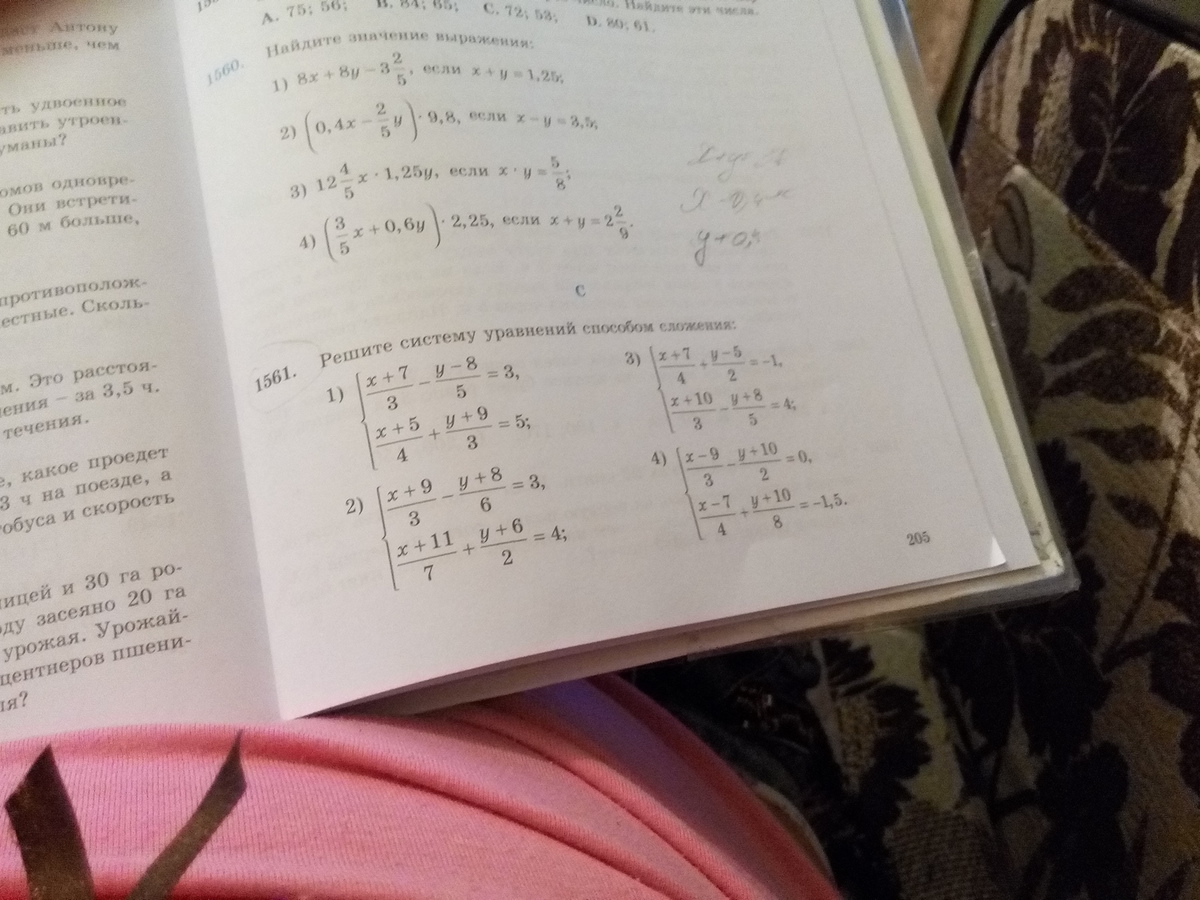 яет Антону
меньше, чем
ть удвоенное
авить утроен-
уманы?
омов одновре-
Они встрети-
60 м больше,
противополож-
естные. Сколь-
м. Это расстоя-
ения – за 3,5 ч.
течения.
е, какое проедет
3 ч на поезде, а
тобуса и скорость
ницей и 30 га ро-
оду засеяно 20 га
урожая. Урожай-
центнеров пшени-
ля?
число. Найдите эти числа.
A. 75; 56; B. 84; 65; C. 72; 53; D. 80; 61.
1560. Найдите значение выражения:
1) 8x + 8y − 3 2/5, если x + y = 1,25;
2) (0,4x − 2/5 y) · 9,8, если x − y = 3,5;
3) 12 4/5 x · 1,25y, если x · y = 5/8;
4) (3/5 x + 0,6y) · 2,25, если x + y = 2 2/9.
C
1561. Решите систему уравнений способом сложения:
1) { (x + 7)/3 − (y − 8)/5 = 3,
(x + 5)/4 + (y + 9)/3 = 5;
2) { (x + 9)/3 − (y + 8)/6 = 3,
(x + 11)/7 + (y + 6)/2 = 4;
3) { (x + 7)/4 + (y − 5)/2 = −1,
(x + 10)/3 − (y + 8)/5 = 4;
4) { (x − 9)/3 − (y + 10)/2 = 0,
(x − 7)/4 + (y + 10)/8 = −1,5.
205